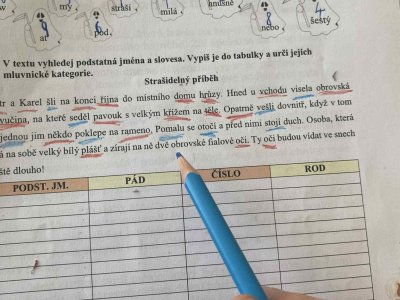 my straší milá hnusné nebo šestý
9 8 4
ať pod
V textu vyhledej podstatná jména a slovesa. Vypiš je do tabulky a urči jejich
mluvnické kategorie.
Strašidelný příběh
tr a Karel šli na konci října do místního domu hrůzy. Hned u vchodu visela obrovská
vučina, na které seděl pavouk s velkým křížem na těle. Opatrně vešli dovnitř, když v tom
jednou jim někdo poklepe na rameno. Pomalu se otočí a před nimi stojí duch. Osoba, která
á na sobě velký bílý plášť a zírají na ně dvě obrovské fialové oči. Ty oči budou vídat ve snech
ště dlouho!
PODST. JM. PÁD ČÍSLO ROD